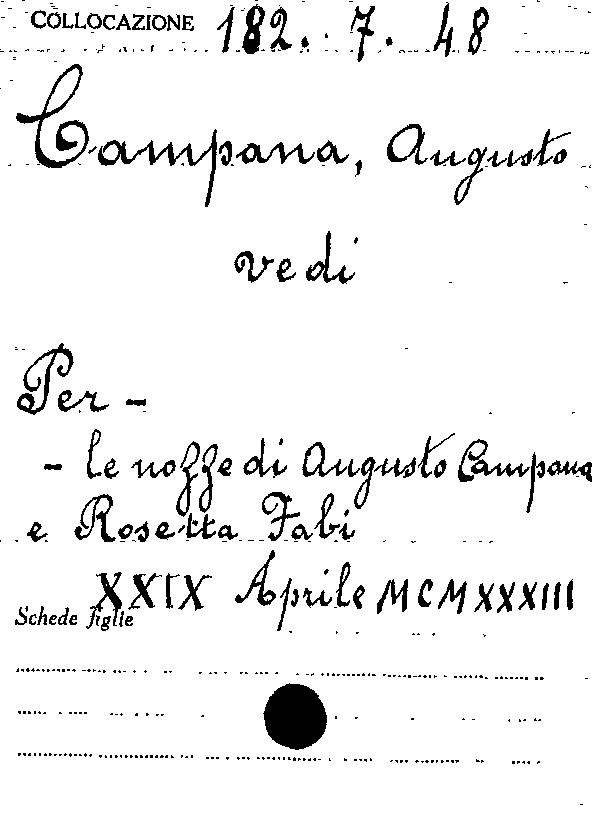 COLLOCAZIONE 182. 7. 48
Campana, Augusto
vedi
Per -
- le nozze di Augusto Campana
e Rosetta Fabi
XXIX Aprile MCMXXXIII
Schede figlie